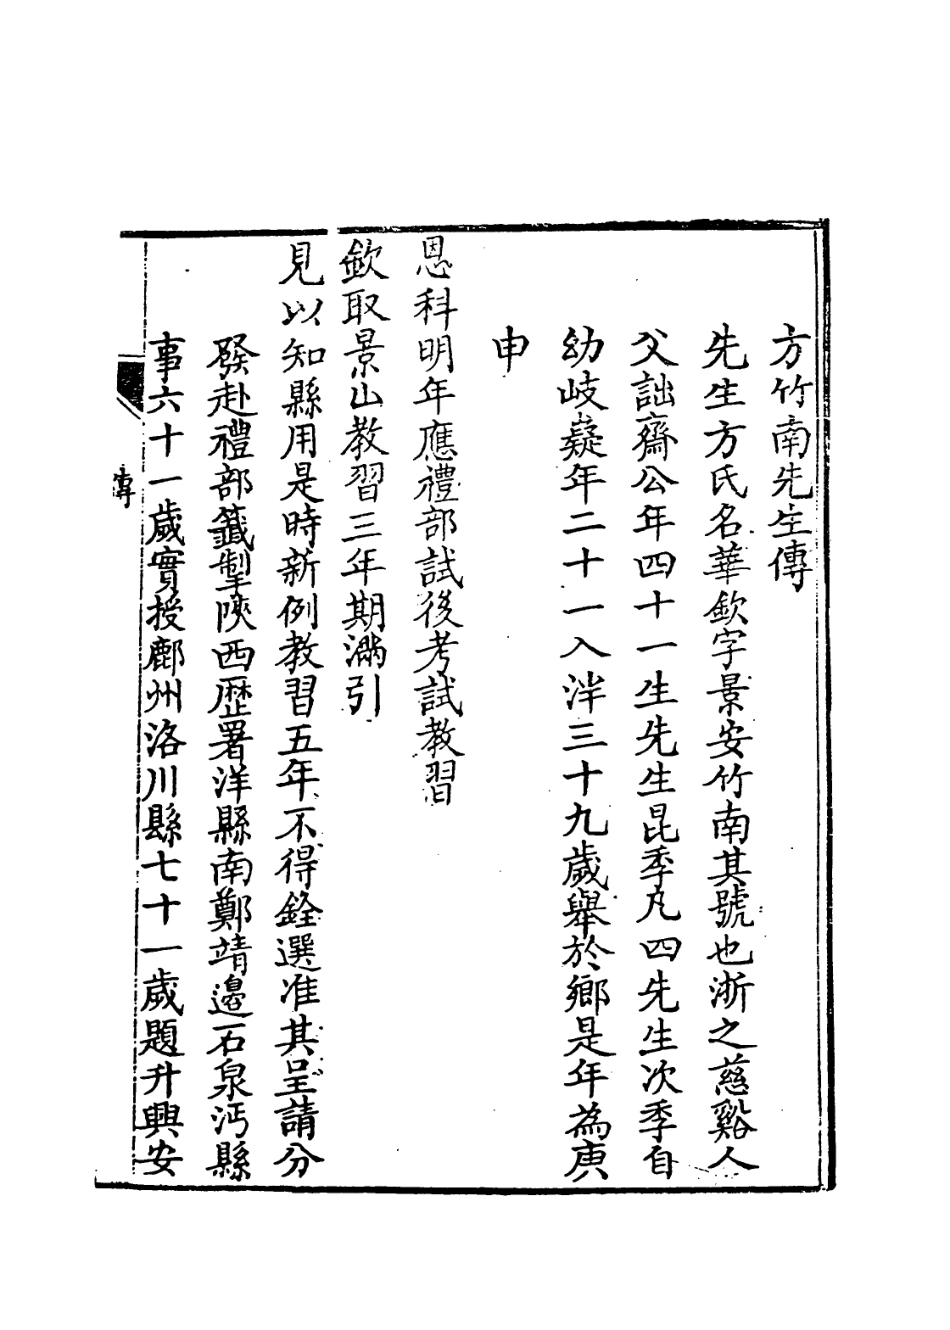 方竹南先生傳
先生方氏名華欽字景安竹南其號也浙之慈谿人
父詘齋公年四十一生先生昆季凡四先生次季自
幼岐嶷年二十一入泮三十九歲舉於鄉是年為庚
申
恩科明年應禮部試後考試教習
欽取景山教習三年期滿引
見以知縣用是時新例教習五年不得銓選准其呈請分
發赴禮部籤掣陝西歷署洋縣南鄭靖邊石泉沔縣
事六十一歲實授鄜州洛川縣七十一歲題升興安
傳